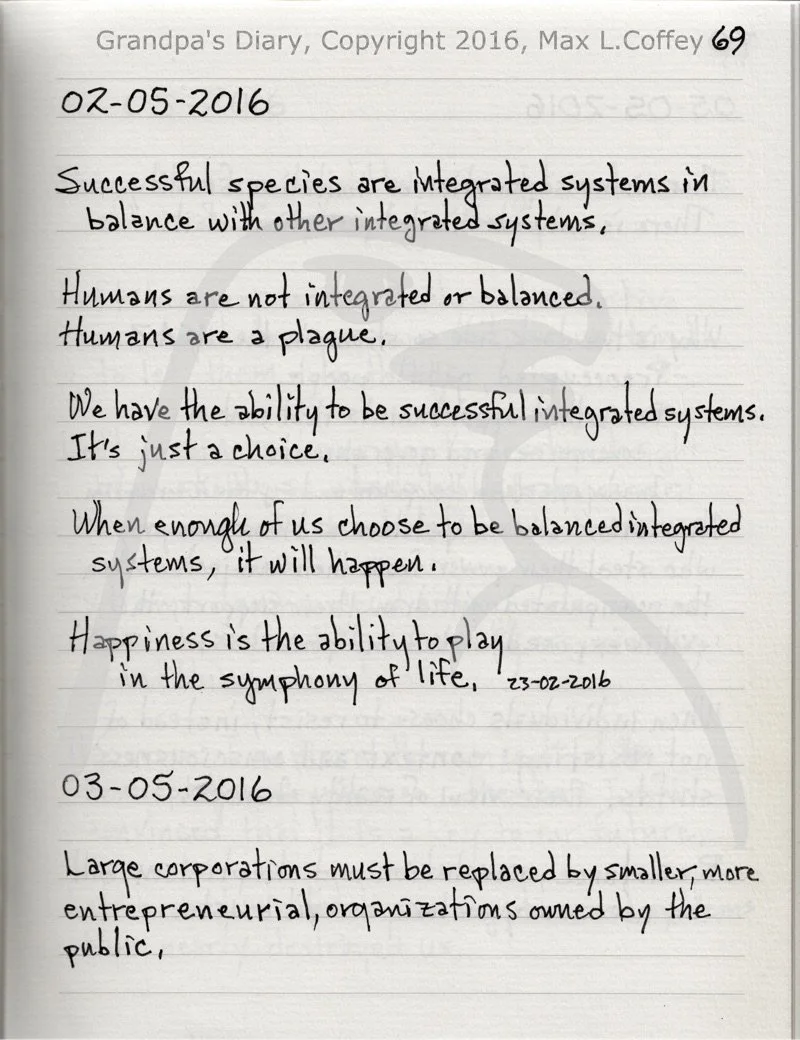 Grandpa's Diary, Copyright 2016, Max L.Coffey 69
02-05-2016
Successful species are integrated systems in
balance with other integrated systems.
Humans are not integrated or balanced.
Humans are a plague.
We have the ability to be successful integrated systems.
It's just a choice.
When enough of us choose to be balanced integrated
systems, it will happen.
Happiness is the ability to play
in the symphony of life. 23-02-2016
03-05-2016
Large corporations must be replaced by smaller, more
entrepreneurial, organizations owned by the
public.